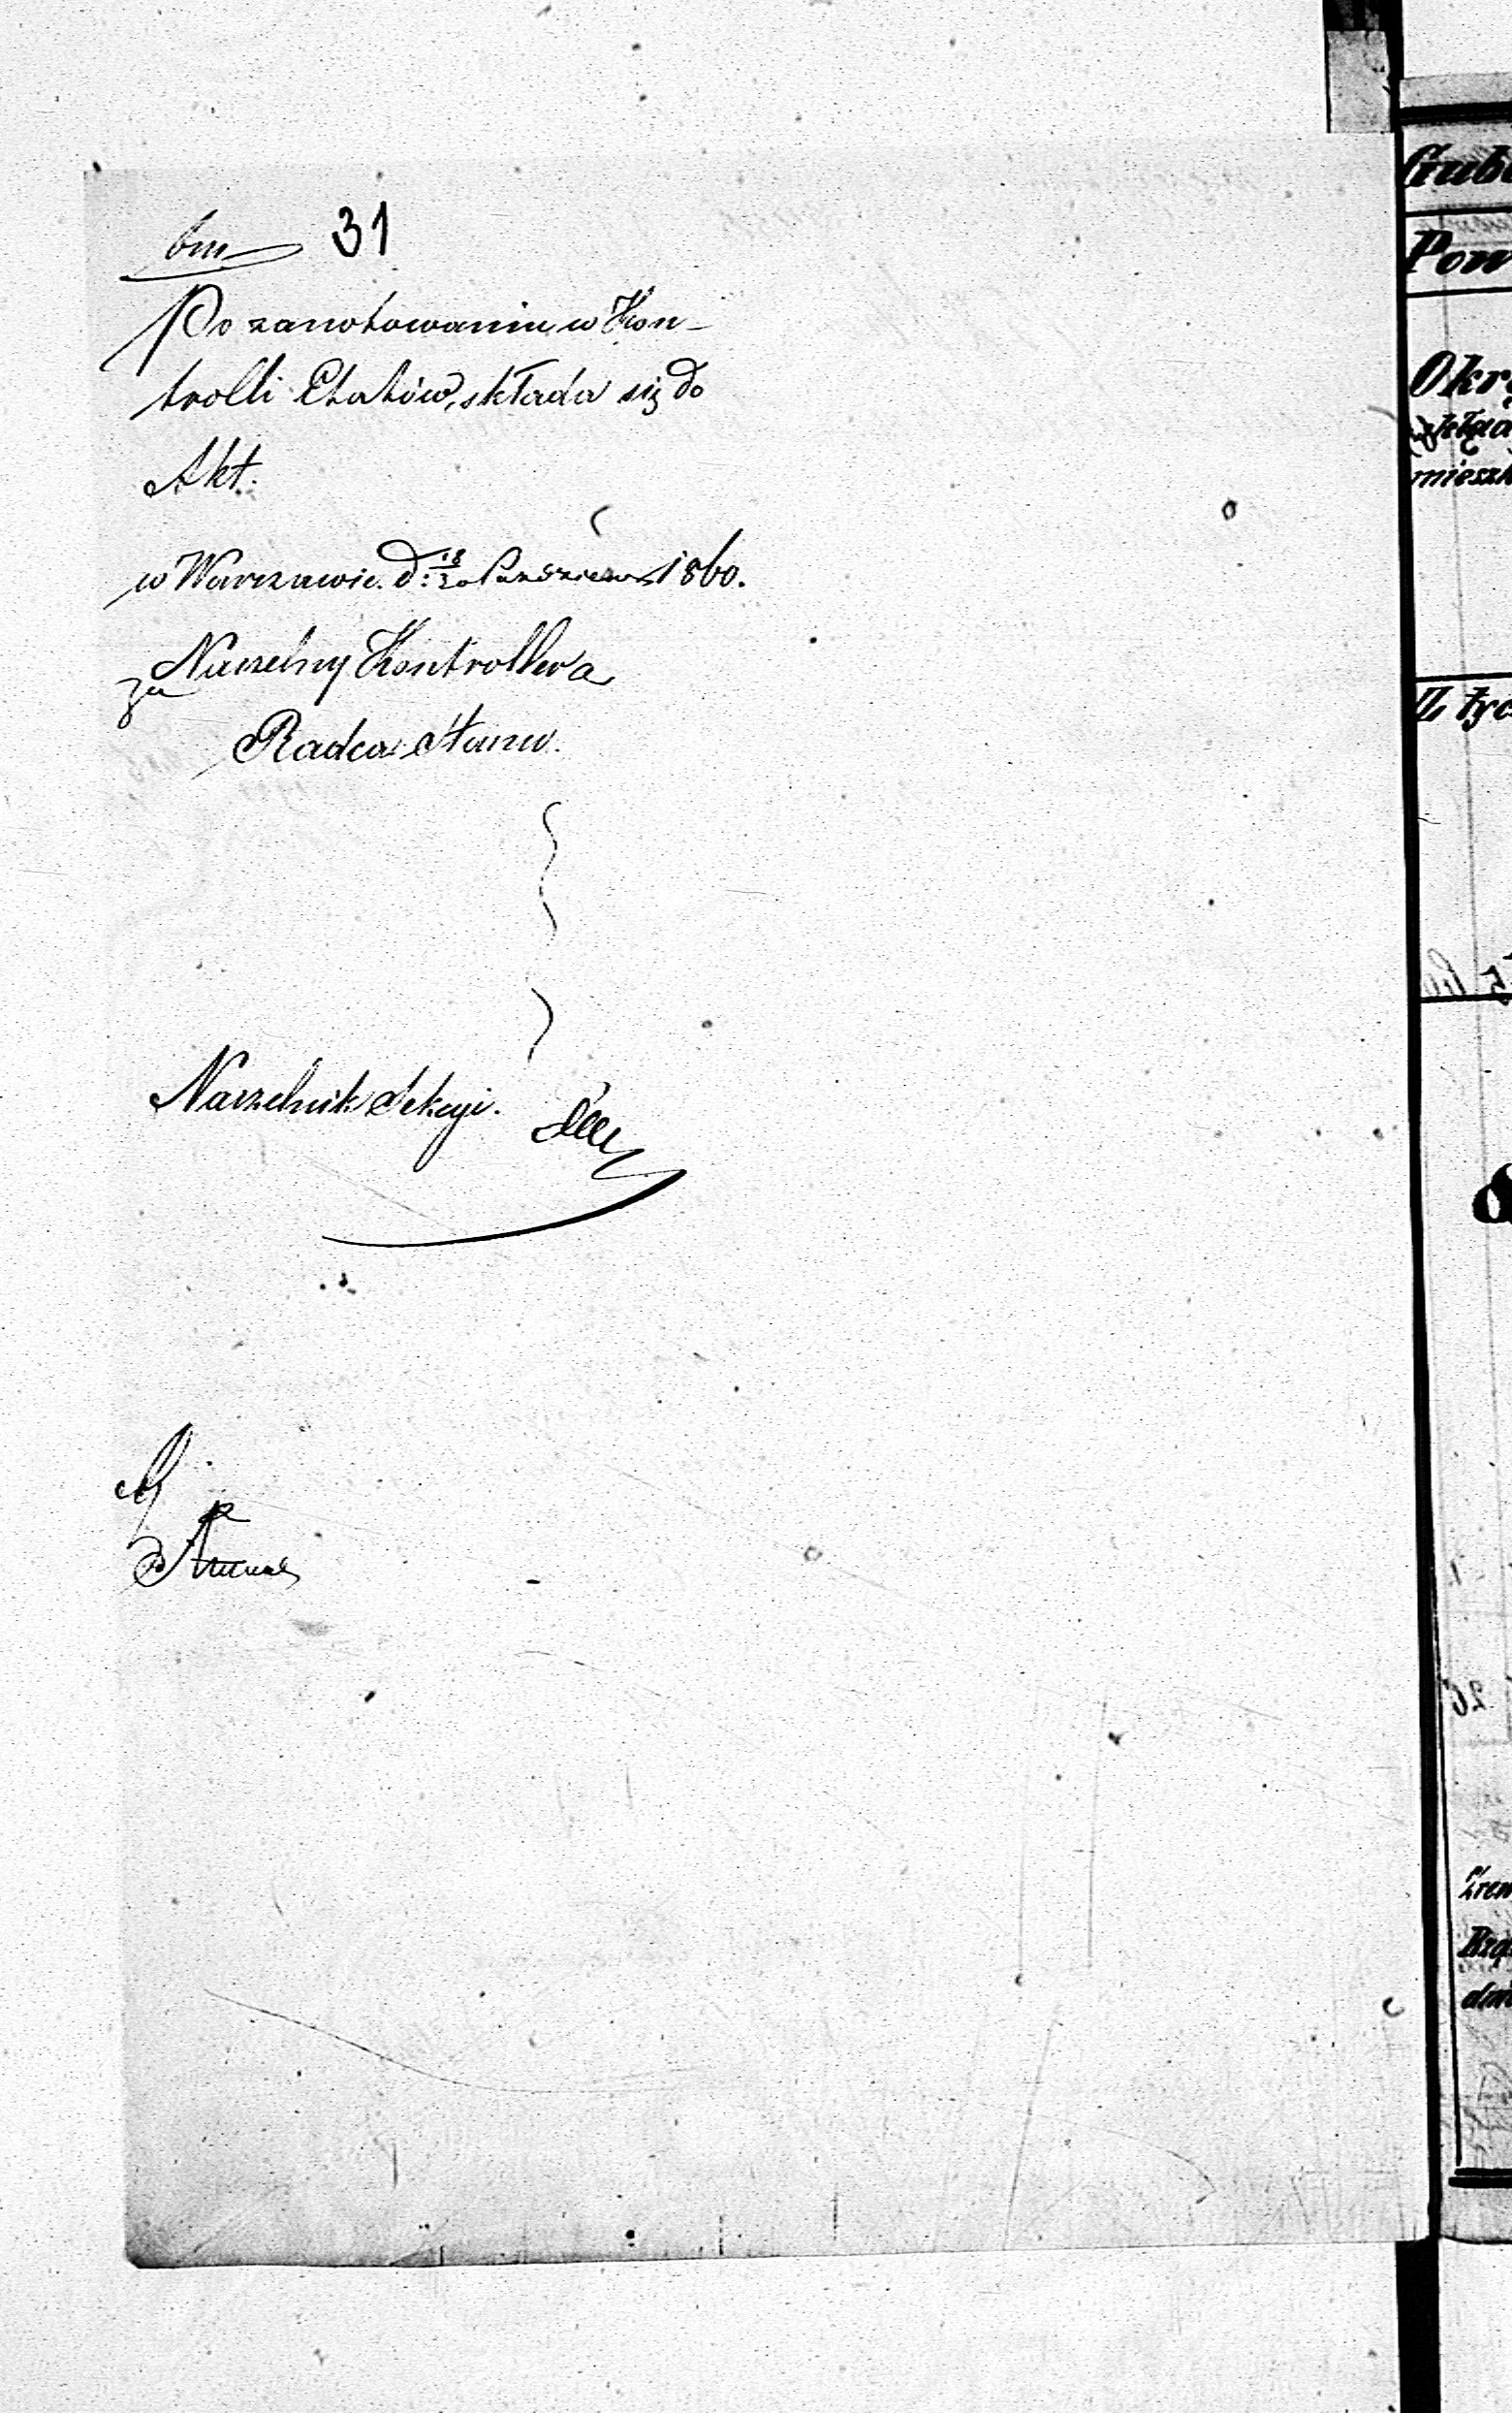 31
Po zanotowaniu w Kon-
trolli Etatów, składa się do
Akt.
w Warszawie d: 18/30 Październ 1860.
za Naczelny Kontrollera
Radca Stanu.
Naczelnik Sekcyi.
Gube
Pow
Okrę
mieszk
Z tyc